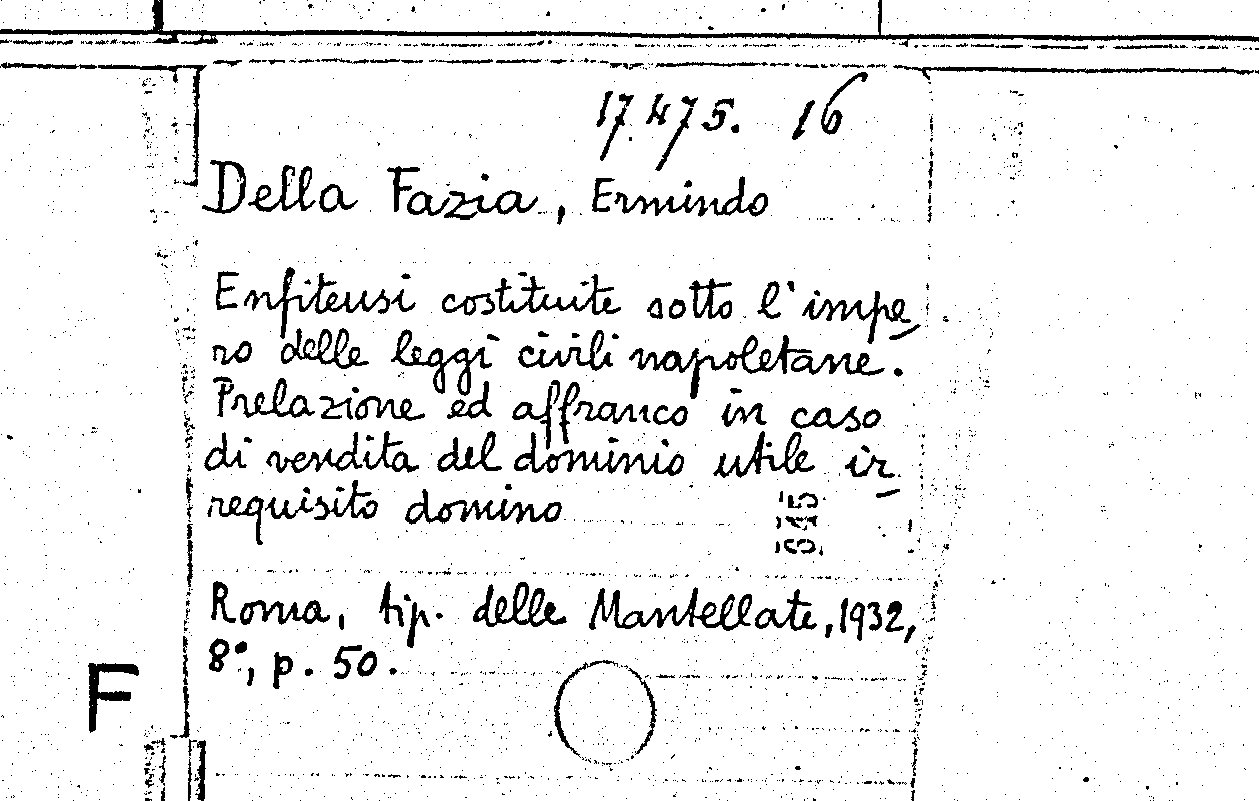 17.475. 16
Della Fazia, Ermindo
Enfiteusi costituite sotto l'impe
ro delle leggi civili napoletane.
Prelazione ed affranco in caso
di vendita del dominio utile ir
requisito domino
645
Roma, tip. delle Mantellate, 1932,
8°, p. 50.
F